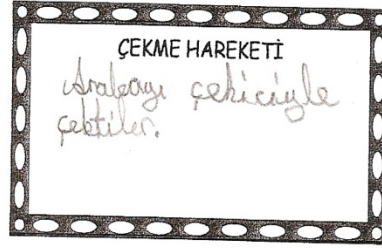 ÇEKME HAREKETİ
Arabayı çekiciyle
çektiler.